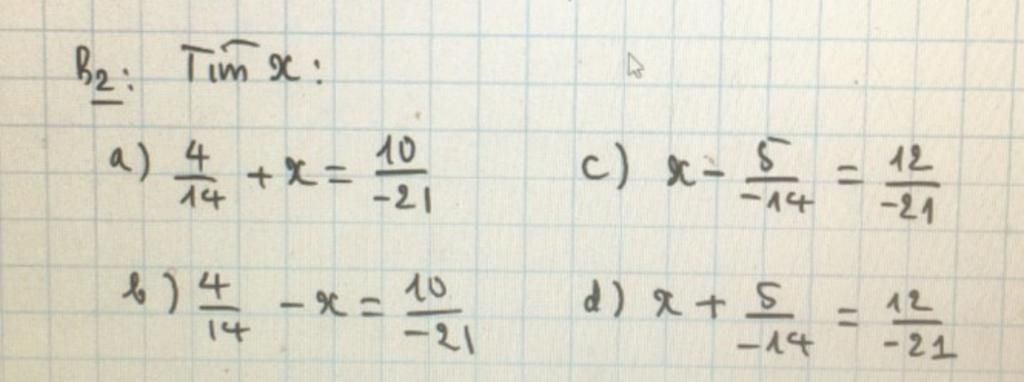 B2: Tìm x:
a) 4/14 + x = 10/-21
c) x - 5/-14 = 12/-21
b) 4/14 - x = 10/-21
d) x + 5/-14 = 12/-21